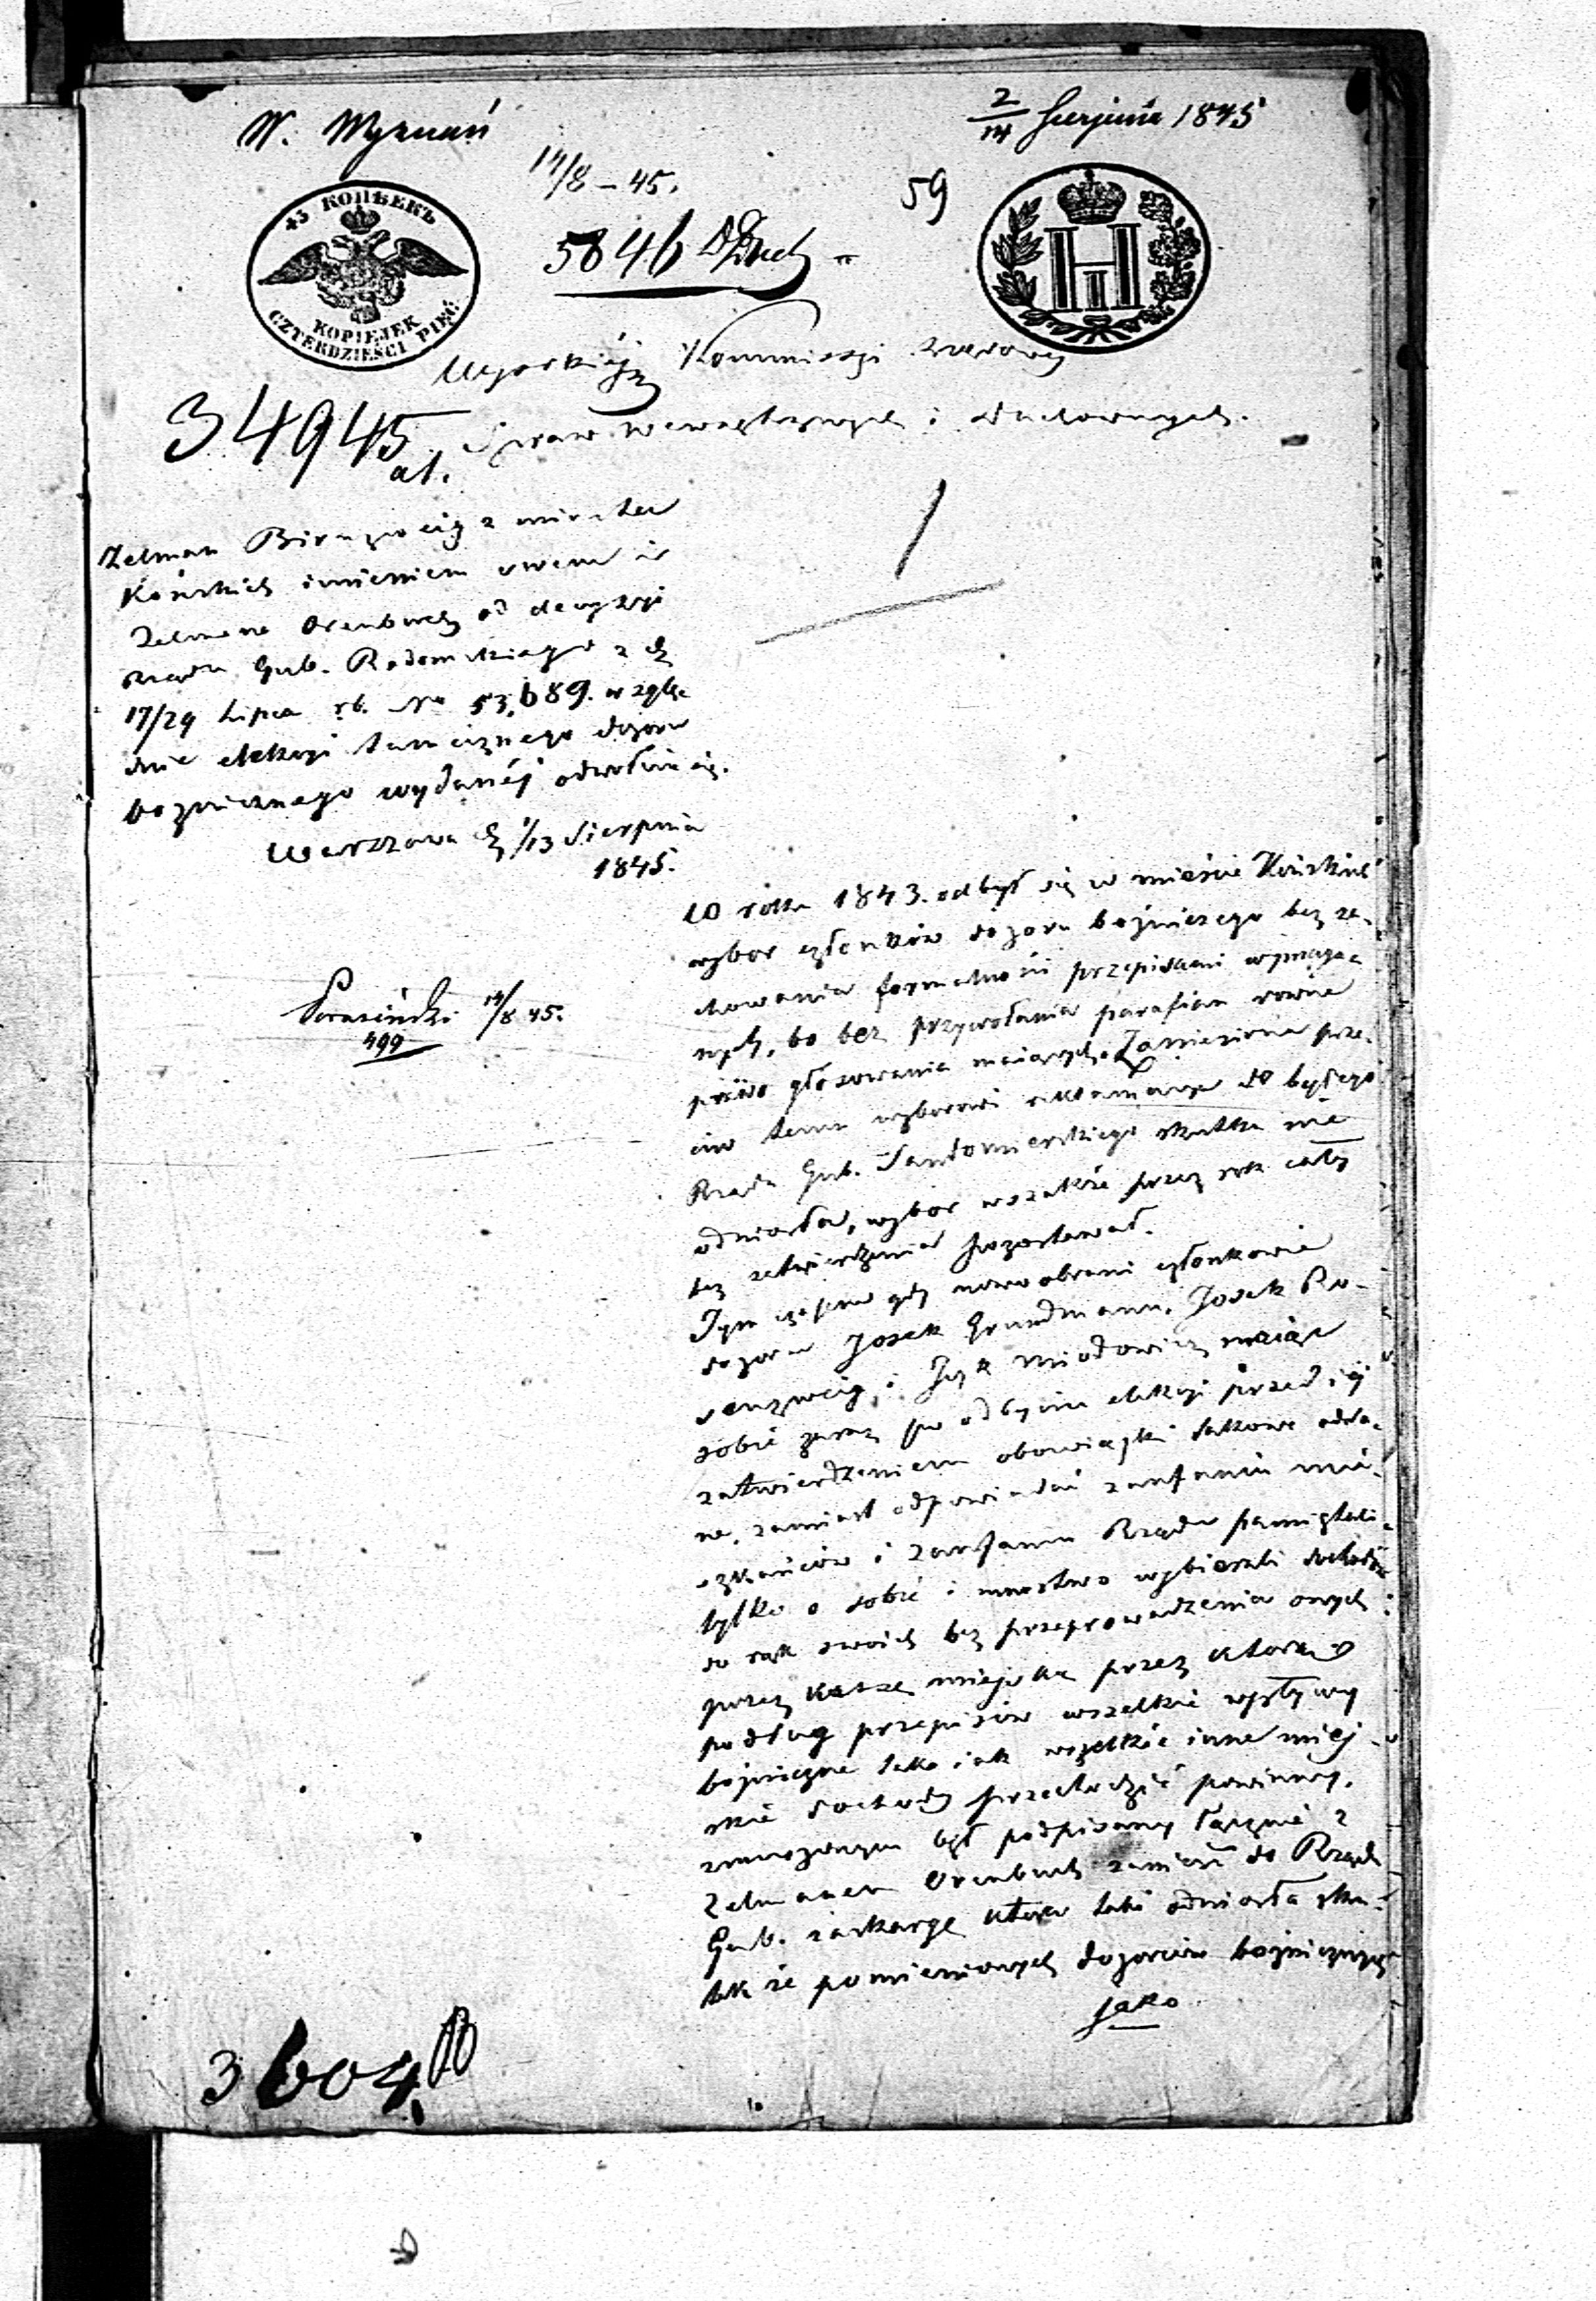 W. Wyznań
2/14 Sierpnia 1845
14/8 – 45.
59
45 КОПѢЕКЪ
KOPIEJEK
CZTERDZIEŚCI PIĘĆ
5846
Wysokiéj Kommissyi Rządowej
34945
Spraw Wewnętrznych i Duchownych.
Zelman Birnzweig z miasta
Końskich imieniem swem i
Zelmana Orenbuch od decyzyi
Rządu Gub. Radomskiego z d
17/29 Lipca rb. No 53,689. wzglę
dnie elekcyi tamecznego dozoru
bożnicznego wydanéj odwołuie się.
Warszawa d 1/13 Sierpnia
1845.
W roku 1843. odbył się w mieście Końskich
wybor członków dozoru bożniczego bez za-
chowania formalności przepisami wymaga-
nych, bo bez przywołania parafian
prawo głosowania maiących. Zaniesiona prze-
ciw temu wyborowi reklamacya do byłego
Rządu Gub. Sandomierskiego skutku nie
odniosła, wybor wszakże przez rok cały
bez zatwierdzenia pozostawał.
Tym czasem gdy nowo obrani członkowie
dozoru Josek Grundmann, Josek Ro-
senzweig, i Icyk Miodowicz maiąc
sobie zaraz po odbyciu elekcyi przed iéj
zatwierdzeniem obowiązki takowe odda-
ne, zamiast odpowiadać zaufaniu mie-
szkańców i zaufaniu Rządu pamiętali
tylko o sobie i mnóstwo wybierali dochodów
do rąk swoich bez przeprowadzenia onych
przez kassę miejską przez którą
podług przepisów wszelkie wpływy
bożniczne tako iak wszelkie inne miej-
skie dochody przechodzić powinny,
zmuszonym był podpisany łącznie z
Zelmanem Orenbuch zanieść do Rządu
Gub. zaskargę która taki odniosła sku-
tek że pomienionych dozorców bożnicznych
jako
14/8 45.
499
3604